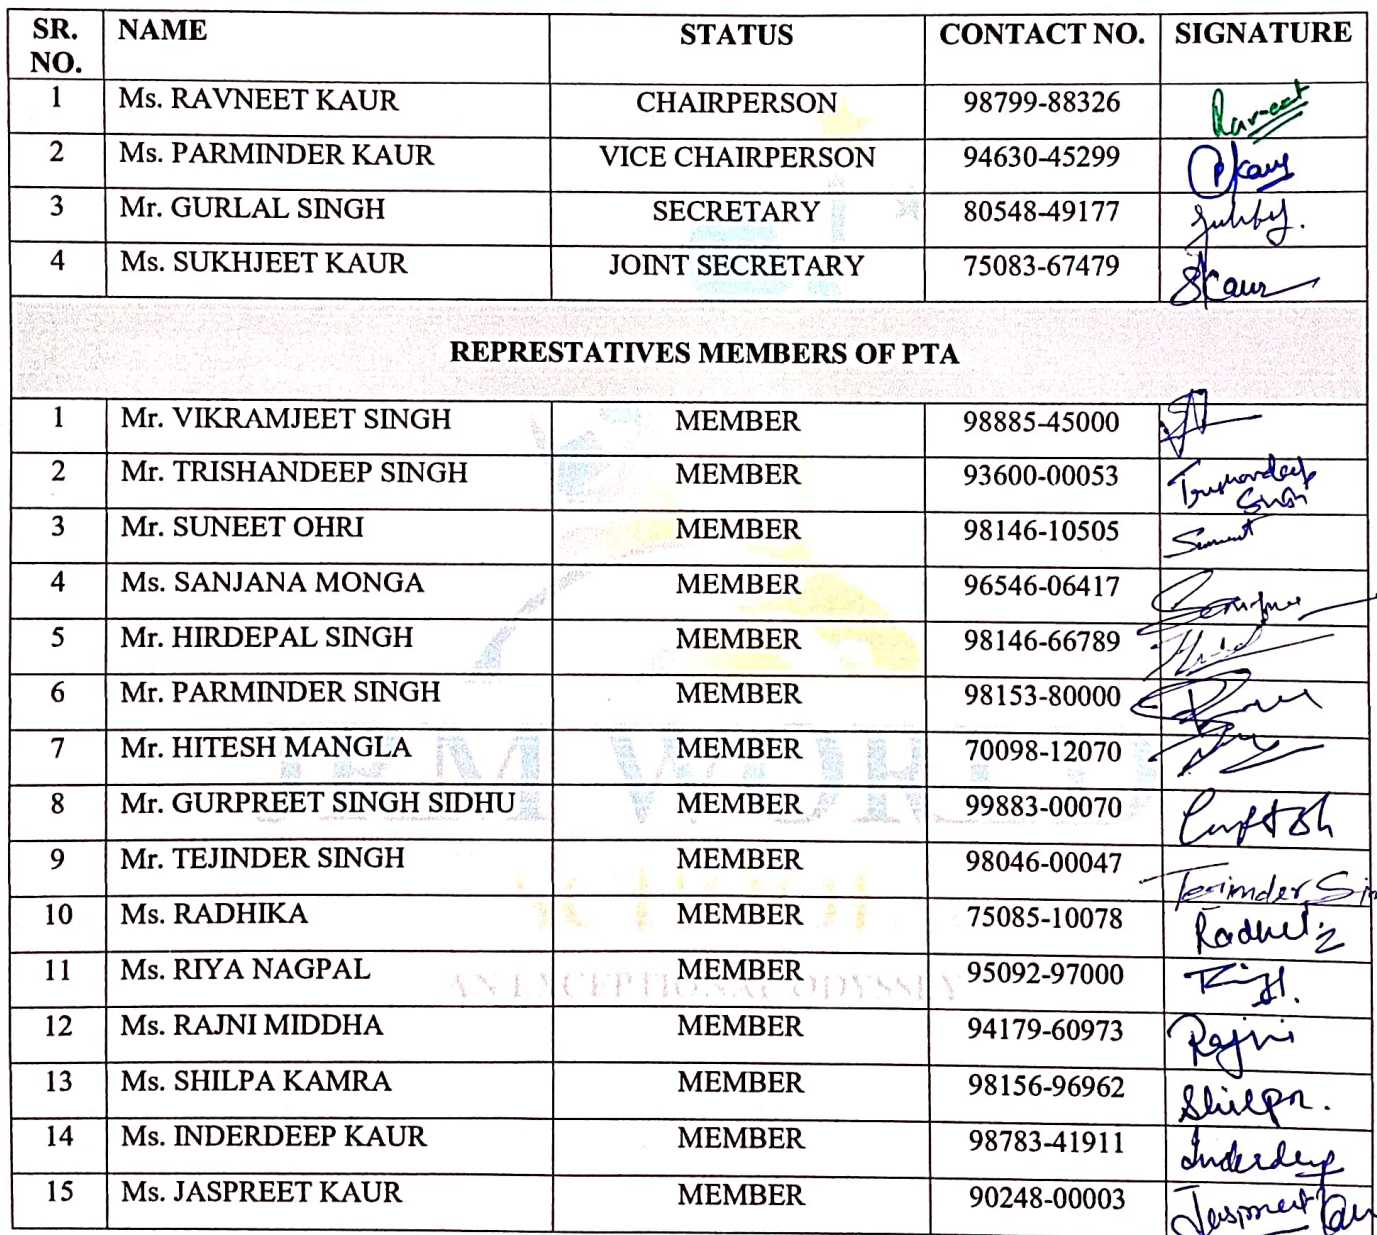 SR. NO. NAME STATUS CONTACT NO. SIGNATURE
1 Ms. RAVNEET KAUR CHAIRPERSON 98799-88326
2 Ms. PARMINDER KAUR VICE CHAIRPERSON 94630-45299 PKaur
3 Mr. GURLAL SINGH SECRETARY 80548-49177
4 Ms. SUKHJEET KAUR JOINT SECRETARY 75083-67479 SKaur
REPRESTATIVES MEMBERS OF PTA
1 Mr. VIKRAMJEET SINGH MEMBER 98885-45000
2 Mr. TRISHANDEEP SINGH MEMBER 93600-00053 Trishandeep Singh
3 Mr. SUNEET OHRI MEMBER 98146-10505
4 Ms. SANJANA MONGA MEMBER 96546-06417
5 Mr. HIRDEPAL SINGH MEMBER 98146-66789
6 Mr. PARMINDER SINGH MEMBER 98153-80000
7 Mr. HITESH MANGLA MEMBER 70098-12070
8 Mr. GURPREET SINGH SIDHU MEMBER 99883-00070
9 Mr. TEJINDER SINGH MEMBER 98046-00047
10 Ms. RADHIKA MEMBER 75085-10078
11 Ms. RIYA NAGPAL MEMBER 95092-97000
12 Ms. RAJNI MIDDHA MEMBER 94179-60973 Rajni
13 Ms. SHILPA KAMRA MEMBER 98156-96962 Shilpa.
14 Ms. INDERDEEP KAUR MEMBER 98783-41911 Inderdeep
15 Ms. JASPREET KAUR MEMBER 90248-00003
AN EXCEPTIONAL ODYSSEY